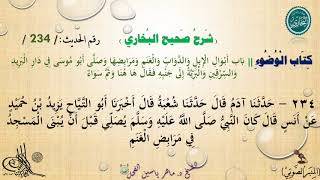 شَرْحُ صَحِيحِ البُخَارِي
رقم الحديث: / 234 /
كِتَابُ الْوُضُوءِ || بَاب أَبْوَالِ الْإِبِلِ وَالدَّوَابِّ وَالْغَنَمِ وَمَرَابِضِهَا وَصَلَّى أَبُو مُوسَى فِي دَارِ الْبَرِيدِ
وَالسِّرْقِينِ وَالْبَرِّيَّةُ إِلَى جَنْبِهِ فَقَالَ هَا هُنَا وَثَمَّ سَوَاءٌ
٢٣٤ - حَدَّثَنَا آدَمُ قَالَ حَدَّثَنَا شُعْبَةُ قَالَ أَخْبَرَنَا أَبُو التَّيَّاحِ يَزِيدُ بْنُ حُمَيْدٍ
عَنْ أَنَسٍ قَالَ كَانَ النَّبِيُّ صَلَّى اللَّهُ عَلَيْهِ وَسَلَّمَ يُصَلِّي قَبْلَ أَنْ يُبْنَى الْمَسْجِدُ
فِي مَرَابِضِ الْغَنَمِ
د. ماهر ياسين الفحل